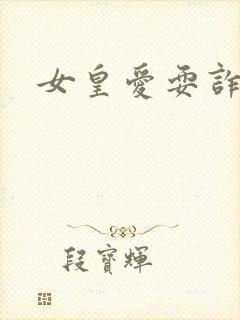 女皇愛耍詐
段寶輝